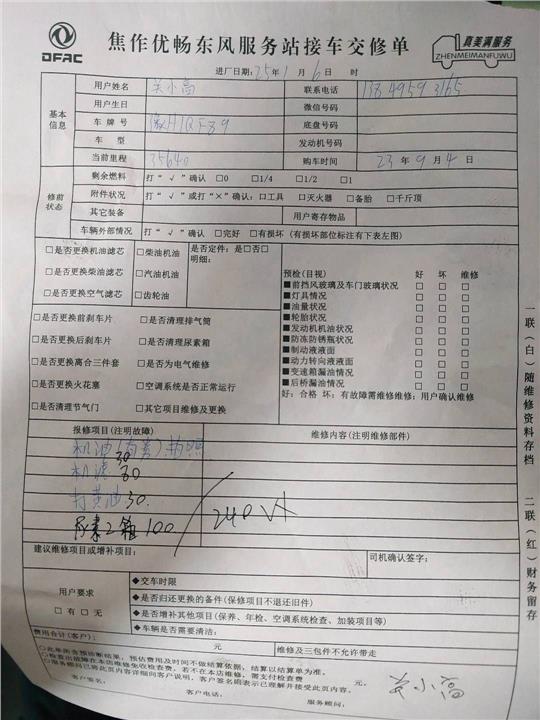 DFAC
焦作优畅东风服务站接车交修单
真美满服务
ZHENMEIMANFUWU
进厂日期:25年1月6日 时
基本信息
用户姓名 关小高 联系电话
用户生日 微信号码
车牌号 豫H1QF89 底盘号码
车型 发动机号码
当前里程 35640 购车时间 23年9月4日
修前状态
剩余燃料 打“√”确认 □0 □1/4 □1/2 □1
附件状况 打“√”或打“×”确认:□工具 □灭火器 □备胎 □千斤顶
其它装备 用户寄存物品
车辆外部情况 打“√”确认 □完好 □有损坏(有损坏部位标注有下表左图)
□是否更换机油滤芯 □柴油机油 是否定件:是□否□
□是否更换柴油滤芯 □汽油机油 明细:
□是否更换空气滤芯 □齿轮油
□是否更换前刹车片 □是否清理排气筒
□是否更换后刹车片 □是否清理尿素箱
□是否更换离合三件套 □是否为电气维修
□是否更换火花塞 □空调系统是否正常运行
□是否清理节气门 □其它项目维修及更换
预检(目视) 好 坏 维修
■前挡风玻璃及车门玻璃状况 □ □ □
■灯具情况 □ □ □
■油量状况 □ □ □
■轮胎状况 □ □ □
■发动机机油状况 □ □ □
■防冻防锈瓶状况 □ □ □
■制动液液面 □ □ □
■动力转向液液面 □ □ □
■变速箱漏油情况 □ □ □
■后桥漏油情况 □ □ □
好:合格 坏:有故障需维修维修;用户确认维修
报修项目(注明故障) 维修内容(注明维修部件)
机油(首卖)拍照
30
机滤 80
打黄油 30.
尿素2箱 100. 240
建议维修项目或增补项目: 司机确认签字:
用户要求
□有 □无
◆交车时限
◆是否归还更换的备件(保修项目不退还旧件)
◆是否增补其他项目(保养、年检、空调系统检查、加装项目等)
◆车辆是否需要清洁:
费用合计(客户): 元 维修及三包件不允许带走
○此单所含诊断结果,预估费用及时间不做结算依据,结算以结算单为准。
○检查出故障在本店维修免收检查费,若不在本店维修,需支付检查费 元。
○服务顾问已将此页内容详细向客户说明,客户签名则表示已理解并接受此页内容。
客户签名: 客户电话: 服务顾问: 关小高
一联(白)随维修资料存档
二联(红)财务留存